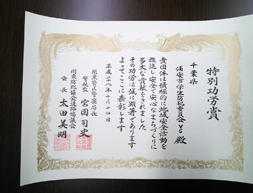 特別功労賞
千葉県
浦安市学生防犯委員会 殿
貴団体は積極的に地域安全活動を
推進し安全で安心なまちづくりに
多大な貢献をされました
その功労は誠に顕著であります
よってここに表彰します
平成二十八年十月十四日
関東管区警察局長
宮園司史
関東防犯協会連絡協議会
会長 太田美明